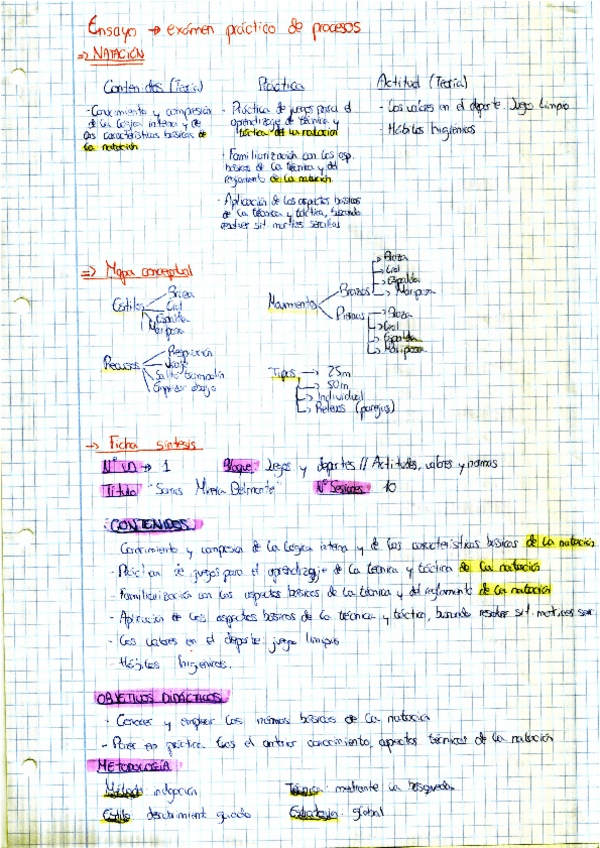 Ensayo → exámen práctico de procesos
⇒ NATACIÓN
Contenidos (Teoría)
- Conocimiento y compresión
de la lógica interna y de
las características básicas de
la natación
Práctica
- Práctica de juegos para el
aprendizaje de técnica y
táctica de la natación
- Familiarización con los asp.
básicos de la técnica y del
reglamento de la natación
- Aplicación de los aspectos básicos
de la técnica y táctica, buscando
resolver sit. motrices sencillas
Actitud (Teoría)
- Los valores en el deporte. Juego limpio
- Hábitos higiénicos
⇒ Mapa conceptual
Estilos
Braza
Crol
Espalda
Mariposa
Recursos
Respiración
Viraje
Salto trampolín
Movimiento
Brazos
Braza
Crol
Espalda
Mariposa
Piernas
Braza
Crol
Espalda
Mariposa
Tipos → 25m
→ 50m
→ Individual
→ Relevos (parejas)
→ Ficha síntesis
Nº UD → 1 Bloque: Juegos y deportes // Actitudes, valores y normas
Título "Somos Mireia Belmonte" Nº Sesiones 10
CONTENIDOS
Conocimiento y compresión de la lógica interna y de las características básicas de la natación
- Práctica de juegos para el aprendizaje de la técnica y táctica de la natación
- Familiarización con los aspectos básicos de la técnica y del reglamento de la natación
- Aplicación de los aspectos básicos de la técnica y táctica, buscando resolver sit. motrices sen
- Los valores en el deporte: juego limpio
- Hábitos higiénicos.
OBJETIVOS DIDÁCTICOS
- Conocer y emplear las normas básicas de la natación
- Poner en práctica tras el anterior conocimiento, aspectos técnicos de la natación
METODOLOGÍA
Método indagación Técnica: mediante la búsqueda
Estilo descubrimiento guiado Estrategia: global